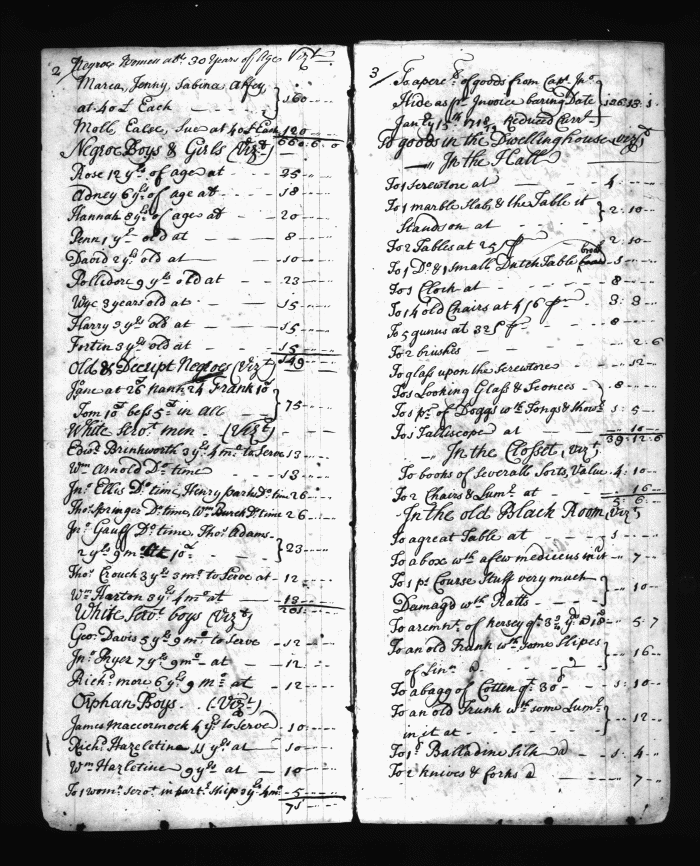 2 Negroe Women att 30 Years of Age Vizt
Marea, Jenny, Sabina, Affey
at 40£ Each — — — } 160
Moll, Ealce, Sue at 40£ Each 120
660:6:0
Negroe Boys & Girls (Vizt)
Rose 12 yrs of age at — — 25
Adney 6 yrs of age att — 18
Hannah 8 yrs of age at — 20
Penn 1 yr old at — — 8
David 2 yrs old at — — 10
Pollidore 9 yrs old at — 23
Wye 3 years old at — 15
Harry 3 yrs old at — 15
Fortin 3 yrs old at — 15
149
Old & Decript Negroes (Vizt)
Jane at 26 Nann 24 Frank 10
Tom 10 bess 5 in all — } 75
White Servt men — (Vizt)
Edwd Brinkworth 3 ys 4 mo to Serve 13
Wm Arnold Do time 13
Jno Ellis Do time, Henry Park Do time 26
Thos Springer Do time, Wm Burch Do time 26
Jno Gauff Do time, Thos Adams
2 ys 9 mo at 10 — } 23
Thos Crouch 3 ys 3 mo to Serve at — 12
Wm Harton 3 ys 4 mo at — 13
White Servt boys (Vizt)
Geo: Davis 5 ys 9 mo to Serve — 12
Jno Fryer 7 ys 9 mo — at — 12
Richd more 6 ys 9 mo at — 12
Orphan Boys — (Vizt)
James Maccormock 4 ys to Serve 10
Richd Hazeletine 11 ys at — 10
Wm Hazletine 9 ys at — 10
To 1 womn Servt 4 mo 5
71
3 To a percl of goods from Capt Jno
Hide as pr Invoice baring Date
Janry 15th 1718/19 Reduced Currt
To goods in the Dwellinghouse (Vizt
— In the Hall
To 1 Screwtore at — — 4
To 1 marble Slab, & the Table it
Stands on at — — } 2:10
To 2 Tables at 25 p — 2:10
To 1 Do & 1 small Dutch Table broak
To 1 Clock at — — 8
To 14 old Chairs at 4/6 pr — 3:3
To 5 gunns at 32 p — 8
To 2 brushes — 2:6
To glass upon the Screwtore — 12
To 1 Looking Glass & Sconces — 8
To 1 pr of Doggs wth Tongs & Shovl — 1:5
To 1 Tallescope at — 10
39:12:6
— In the Closet, Vizt
To books of severall Sorts, Value 4:10
To 2 Chairs & Lumr at — 16
5:6
— In the old Black Room, Vizt
To a great Table at — 1
To a box wth a few medicins in it — 7
To 1 ps Course Stuff very much
Damagd wth Ratts — — } 10
To a remnt of kersey — 5:7
To an old Trunk wth Some Slipes
of Linn — } 16
To a bagg of Cotten qt 30 — 1:10
To an old Trunk wth some Lumr
in it at — — } 12
To 1 Balladine Silk — 1:4
To 2 knives & forks — 7